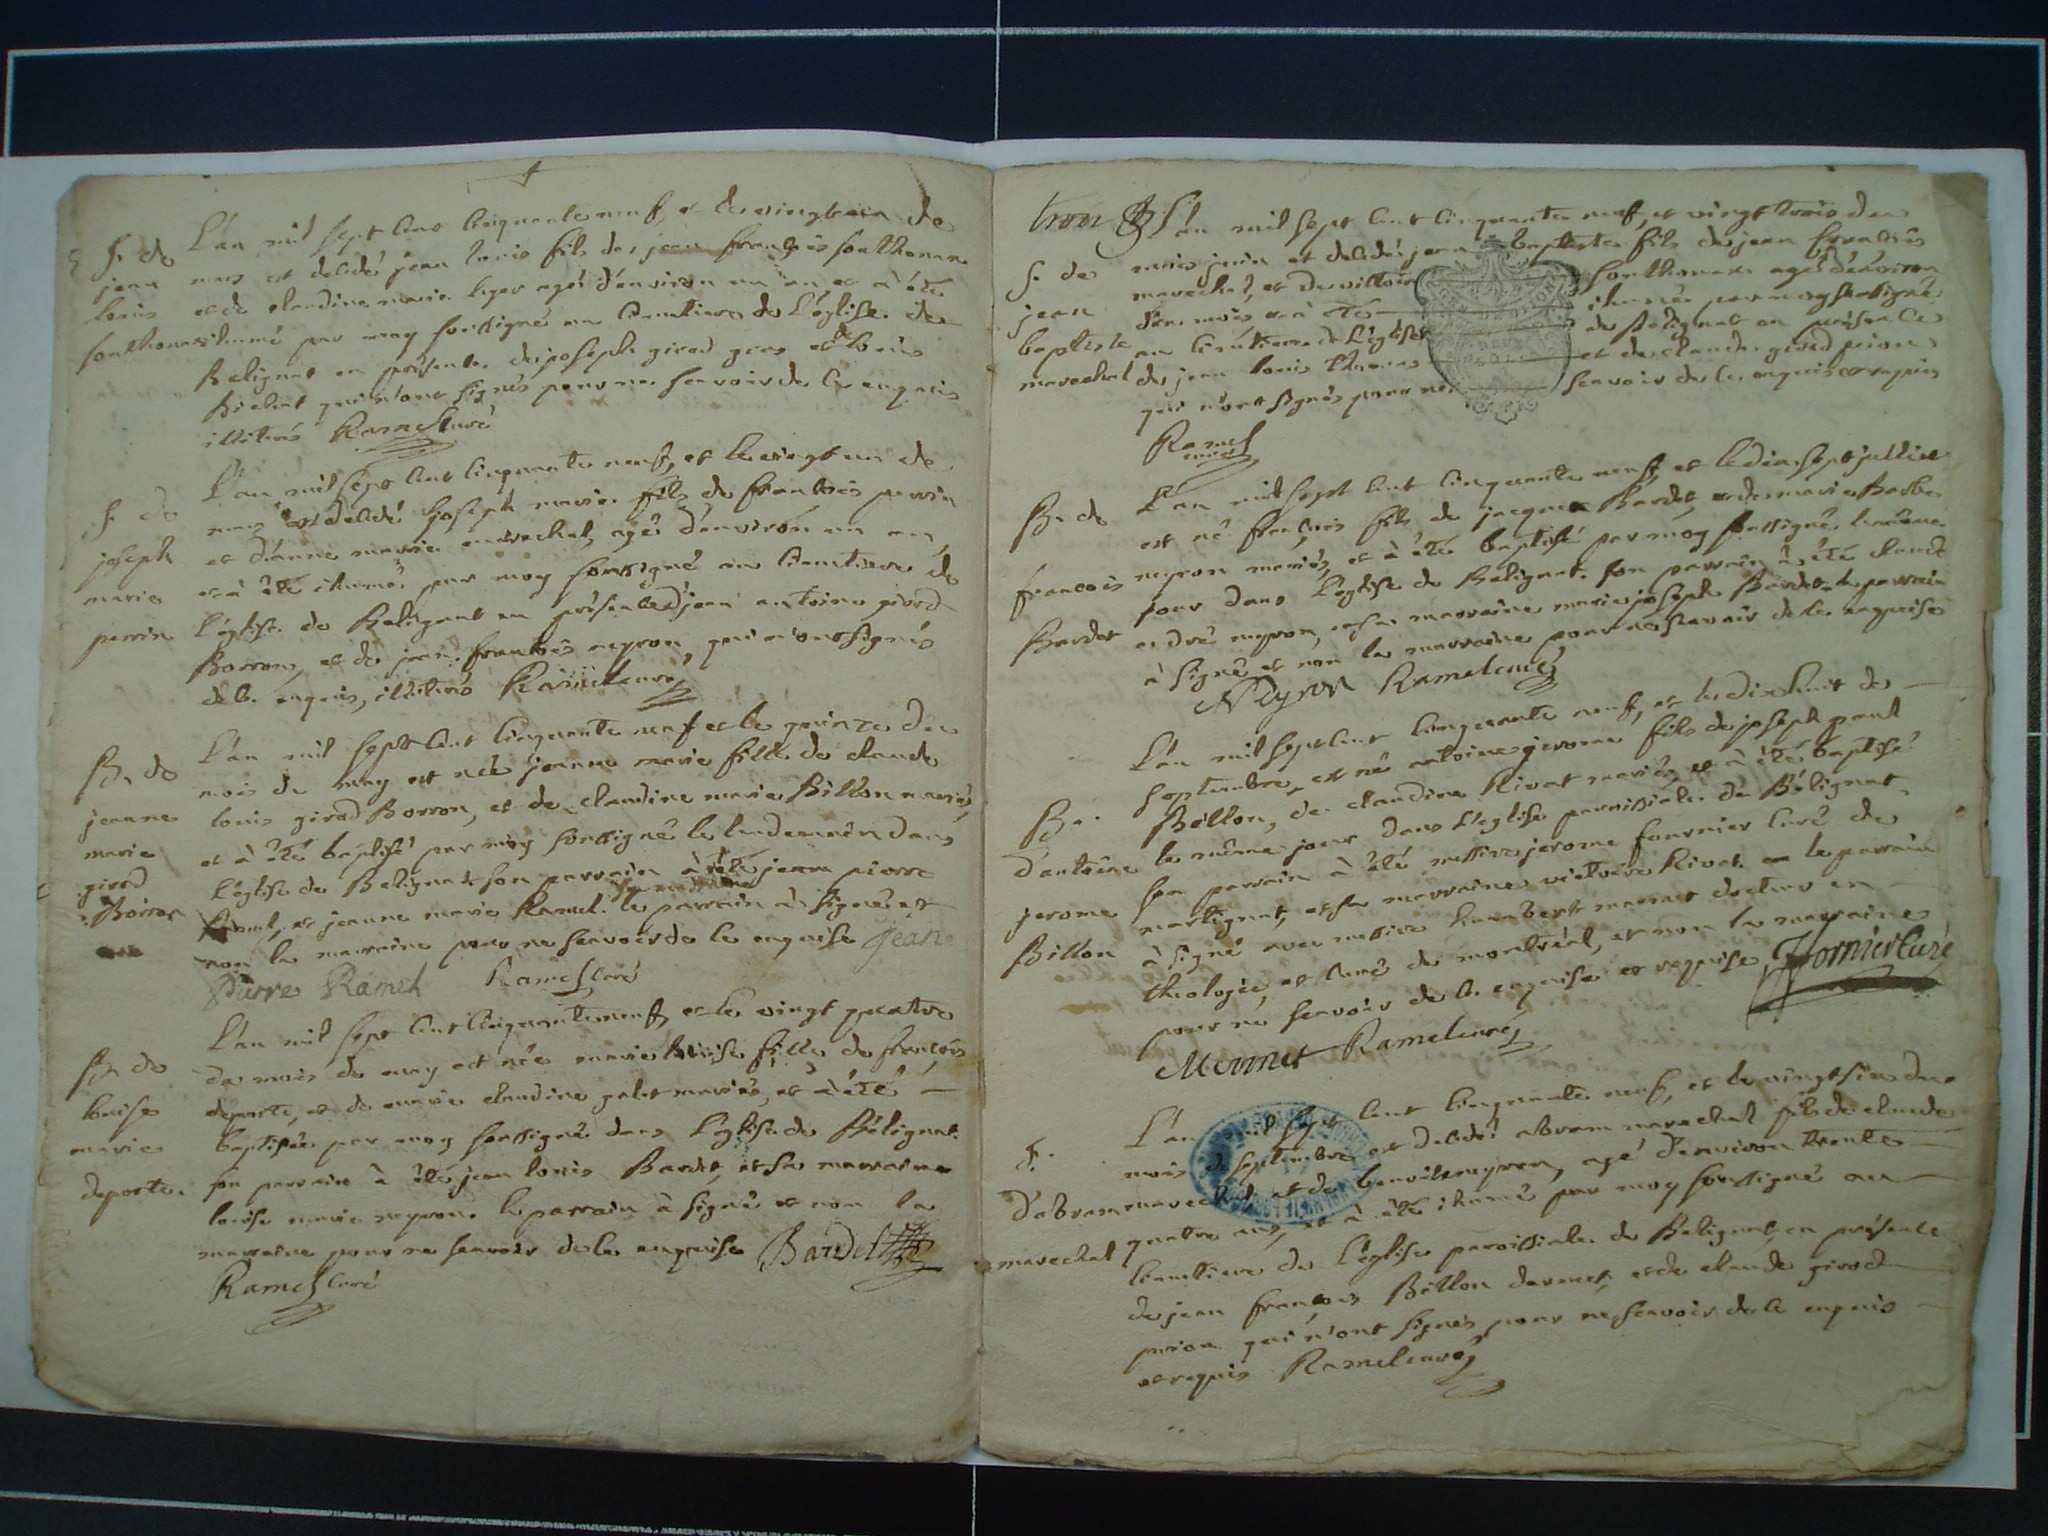 S. de
jean
louis
sonthonax
L'an mil sept cens cinquante neuf, et le vingt un de
mars est decédé jean louis fils de jean françois sonthonax
et de claudine marie agé d'environ un an et à été
inhumé par moy soussigné au cimetiere de l'église de
Belignat en présence de joseph girod et de louis
qui n'ont signés pour ne scavoir de ce enquis
illiterés Ramel curé
S. de
joseph
marie
perrin
L'an mil sept cent cinquante neuf, et le vingt un de
mars est decédé joseph marie fils de francois perrin
et d'anne marie marechal, agé d'environ un an
et à été inhumé par moy soussigné au cimetiere de
l'église de Belignat en présence de jean antoine girod
Borron, et de jean francois neyron, qui n'ont signés
de ce enquis, illiterés Ramel curé
B. de
jeanne
marie
girod
Borron
L'an mil sept cent cinquante neuf et le quinze du
mois de may est née jeanne marie fille de claude
louis girod Borron, et de claudine marie Billon mariés,
et à été baptisé par moy soussigné le lendemain dans
l'église de Belignat son parrain à été jean pierre
Ramel, et jeanne marie Ramel. le parrain à signé et
non la marraine pour ne scavoir de ce enquise jean
pierre Ramel Ramel curé
B. de
louise
marie
deporte
L'an mil sept cent cinquante neuf, et le vingt quatre
du mois de may est née marie louise fille de francois
deporte, et de marie claudine galet mariés, et à été
baptisée par moy soussigné dans l'église de Bélignat.
son parrain à été jean louis Bardet, et sa marraine
louise marie neyron. le parrain à signé et non la
marraine pour ne scavoir de ce enquise Bardet
Ramel curé
L'an mil sept cent cinquante neuf, et vingt trois du
S. de
jean
baptiste
marechal
mois juin est decedé jean baptiste fils de jean francois
marechal, et de victoire sonthonax agé d'environ
d'un mois et à été inhumé par moy soussigné
au cimetiere de l'église de Belignat en présence
de jean louis thomas et de claude girod prion
qui n'ont signés pour ne scavoir de ce enquis et requis
Ramel
B. de
francois
Bardet
L'an mil sept cent cinquante neuf, et le dix sept juillet
est né françois fils de jacques Bardet, et de marie Barbe
neyron mariés, et à été baptisé par moy soussigné le même
jour dans l'église de Belignat. son parrain à été claude
andré neyron, et sa marraine marie joseph Bardet. le parrain
à signé et non la marraine pour ne scavoir de ce enquise
Neyron Ramel curé
B.
d'antoine
jerome
Billon
L'an mil sept cent cinquante neuf, et le dix huit de
septembre, est né antoine jerome fils de joseph paul
Billon, de claudine Rivat mariés, et à été baptisé
le même jour dans l'église parroissiale de Bélignat,
son parrain à été messire jerome fournier curé de
martignat, et sa marraine victoire Rivat. le parrain
à signé avec messire humbert mermet docteur en
theologie, et curé de montréal, et non la marraine
pour ne scavoir de ce enquise et requise fornier curé
Mermet Ramel curé
S.
D'abram
marechal
L'an mil sept cent cinquante neuf, et le vingt six du
mois de septembre est decédé abram marechal fils de claude
marechal et de neyron, agé d'environ trente
quatre ans, et à été inhumé par moy soussigné au
cimetiere de l'église paroissiale de Belignat, en présence
de jean françois Billon davenet, et de claude girod
prion qui n'ont signés pour ne scavoir de ce enquis
et requis Ramel curé